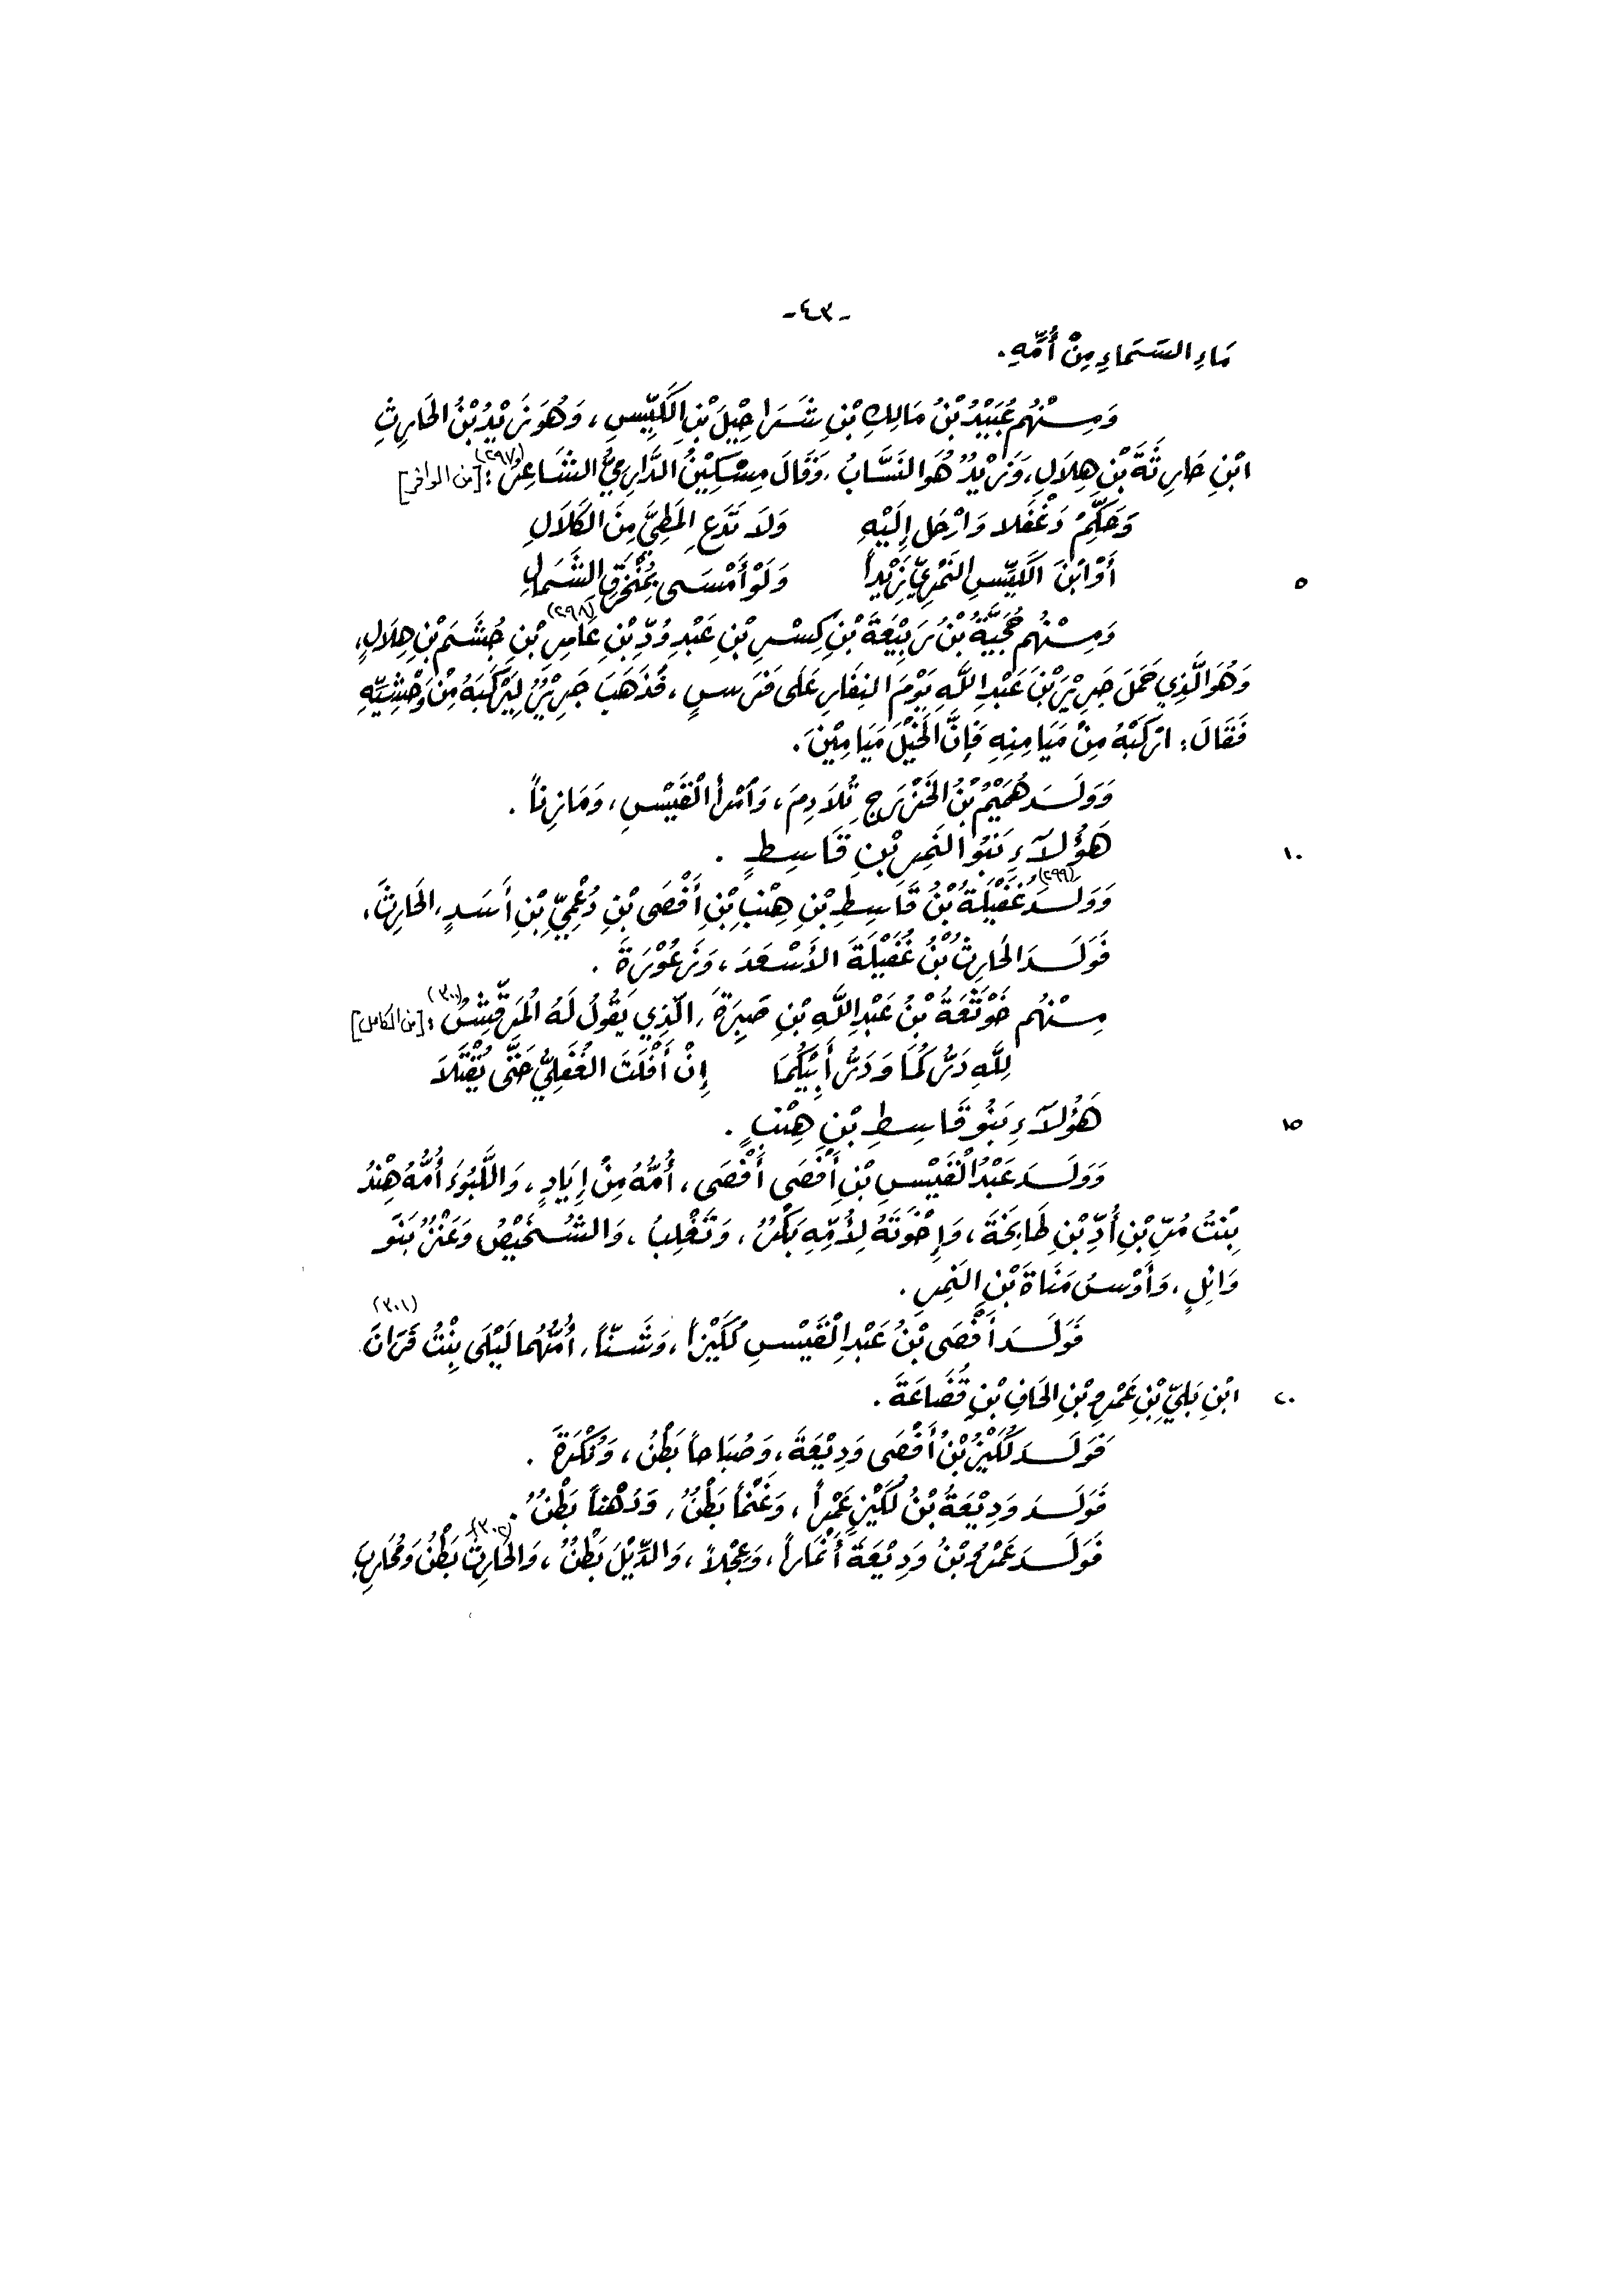 -٤٣-
مَاءِ السَّمَاءِ مِنْ أُمِّهِ.
وَمِنْهُم عُبَيْدُ بْنُ مَالِكِ بْنِ شَرَاحِيْلَ بْنِ الكَيِّسِ، وَهُوَ زَيْدُ بْنُ الحَارِثِ
ابْنِ حَارِثَةَ بْنِ هِلَالٍ، وَزَيْدٌ هُوَ النَّسَّابُ، وَقَالَ مِسْكِيْنُ الدَّارِمِيُّ الشَّاعِرُ(٢٩٧): [من الوافر]
وَحَكِّمْ دَغْفَلاً وَارْحَلْ إِلَيْهِ وَلَا تَدَعِ المَطِيَّ مِنَ الكَلَالِ
٥ أَوْ ابْنَ الكَيِّسِ النَّمَرِيِّ زَيْداً وَلَوْ أَمْسَى بِمُنْخَرَقِ الشَّمَالِ
وَمِنْهُم حُجَيَّةُ بْنُ رَبِيْعَةَ بْنِ كِسْرِ بْنِ عَبْدِ وُدِّ بْنِ عَامِرِ(٢٩٨) بْنِ جُشَمَ بْنِ هِلَالٍ،
وَهُوَ الَّذِي حَمَلَ جَرِيْرَ بْنَ عَبْدِ اللَّهِ يَوْمَ النِفَارِ عَلَى فَرَسٍ، فَذَهَبَ جَرِيْرٌ لِيَرْكَبَهُ مِنْ وَحْشِيِّهِ
فَقَالَ: ارْكَبْهُ مِنْ مَيَامِنِهِ فَإِنَّ الخَيْلَ مَيَامِيْنَ.
وَوَلَدَ هُمَيْمُ بْنُ الخَزْرَجِ تُلَادِمَ، وَامْرأَ الْقَيْسِ، وَمَازِناً.
١٠ هَؤُلَآءِ بَنُو النَّمِرِ بْنِ قَاسِطٍ.
وَوَلَدَ غُفَيْلَةُ(٢٩٩) بْنُ قَاسِطِ بْنِ هِنْبِ بْنِ أَفْصَى بْنِ دُعْمِيِّ بْنِ أَسَدٍ، الحَارِثَ،
فَوَلَدَ الحَارِثُ بْنُ غُفَيْلَةَ الأَسْعَدَ، وَزَعْوَرَةَ.
مِنْهُم خَوْتَعَةُ بْنُ عَبْدِ اللَّهِ بْنِ صَبِرَةَ، الَّذِي يَقُولُ لَهُ المُرَقِّشُ(٣٠٠): [من الكامل]
لِلَّهِ دَرُّكُمَا وَدَرُّ أَبِيْكُمَا إِنْ أَفْلَتَ الغُفَلِيُّ حَتَّى يُقْتَلَا
١٥ هَؤُلَآءِ بَنُو قَاسِطِ بْنِ هِنْبٍ.
وَوَلَدَ عَبْدُ الْقَيْسِ بْنِ أَفْصَى أَفْصَى، أُمُّهُ مِنْ إِيَادٍ، وَاللَّبُوءَ أُمُّهُ هِنْدُ
بِنْتُ مُرِّ بْنِ أُدِّ بْنِ طَابِخَةَ، وَإِخْوَتَهُ لِأُمِّهِ بَكْرٌ، وَتَغْلِبُ، وَالشُّخَيْصُ وَعَنْزٌ بَنُو
وَائِلٍ، وَأَوْسُ مَنَاةَ بْنِ النَّمِرِ.
فَوَلَدَ أَفْصَى بْنُ عَبْدِ الْقَيْسِ لُكَيْزاً، وَشَنّاً، أُمُّهُمَا لَيْلَى بِنْتُ فَرَانَ(٣٠١)
٢٠ ابْنِ بَلِيِّ بْنِ عَمْرِو بْنِ الحَافِ بْنِ قُضَاعَةَ.
فَوَلَدَ لُكَيْزُ بْنُ أَفْصَى وَدِيْعَةَ، وَصُبَاحاً بَطْنٌ، وَنُكْرَةَ.
فَوَلَدَ وَدِيْعَةُ بْنُ لُكَيْزٍ عَمْراً، وَغَنْماً بَطْنٌ، وَدُهْناً بَطْنٌ.
فَوَلَدَ عَمْرُو بْنُ وَدِيْعَةَ أَنْمَاراً، وَعِجْلاً، وَالدِّيْلَ بَطْنٌ، وَالحَارِثَ(٣٠٢) بَطْنٌ وَمُحَارِبَ